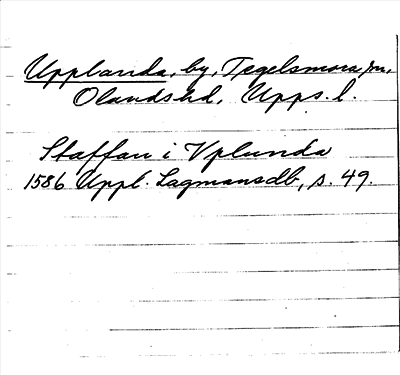 Upplanda, by, Tegelsmora sn,
Olands hd, Upps. l.
Staffan i Vplunda
1586 Uppl. Lagmansdb, s. 49.